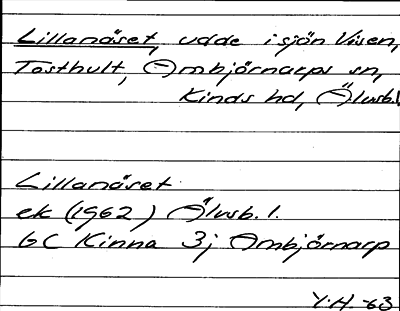 Lillanäset, udde i sjön Visen,
Tosthult, Ambjörnarps sn,
Kinds hd, Älvsb.l
Lillanäset
ek (1962) Älvsb. l.
6C Kinna 3j Ambjörnarp
Y.H. -63